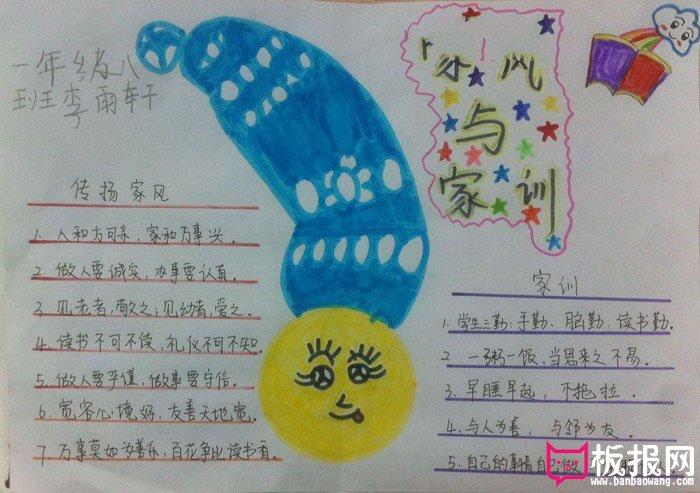 一年级八
班王李雨轩
家风
与
家训
传扬家风
1、人和为可亲，家和万事兴。
2、做人要诚实，办事要认真。
3、见老者，敬之；见幼者，爱之。
4、读书不可不读，礼仪不可不知。
5、做人要严谨，做事要守信。
6、宽容心境好，友善天地宽。
7、万事莫如为善乐，百花争比读书香。
家训
1、学生三勤：手勤、脑勤、读书勤。
2、一粥一饭，当思来之不易。
3、早睡早起，不拖拉。
4、与人为善，与邻为友。
5、自己的事情自己做
板报网
www.banbaowang.com